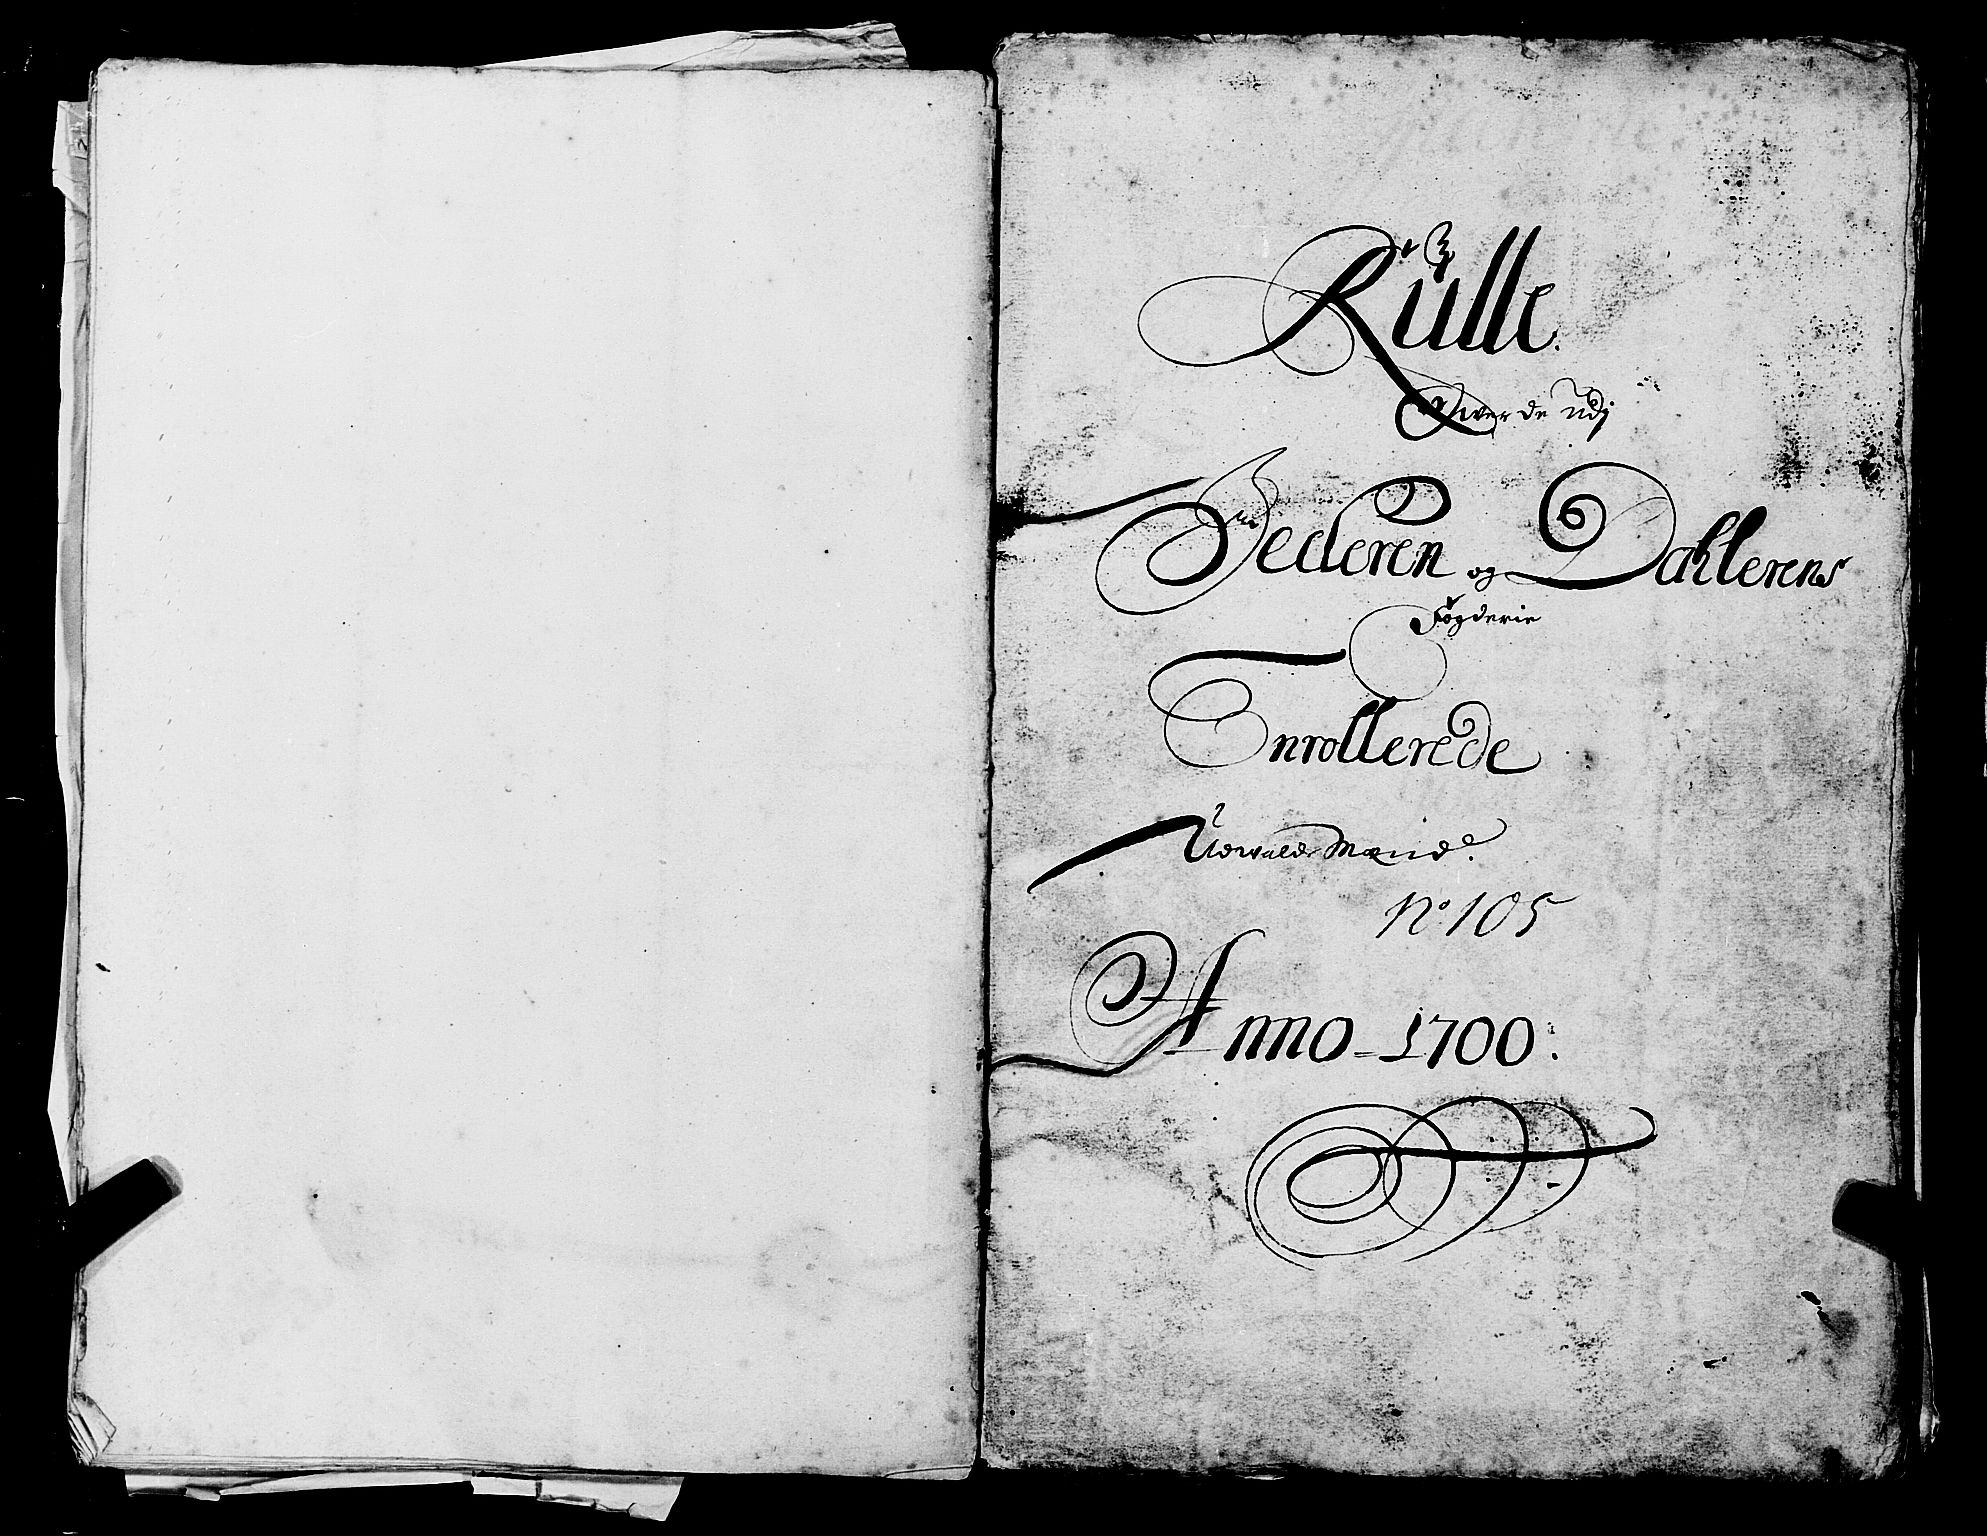 Rülle
Over de Udj
Jederen og Dahlerens
Fogderie
Enrollerede
Udvalde Mænd.
No. 105
Anno 1700: